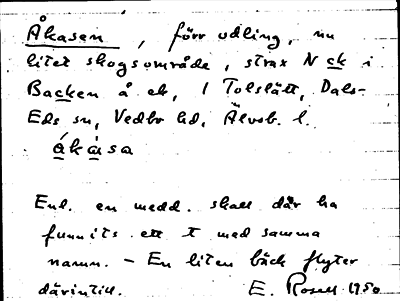 Åkasen, förr odling, nu
litet skogsområde, strax N ck i
Backen å ek, 1 Tolslätt, Dals-
Eds sn, Vedbo hd, Älvsb. l.
ákàsa
Enl. en medd. skall där ha
funnits ett t med samma
namn. – En liten bäck flyter
därintill. E. Rosell 1950